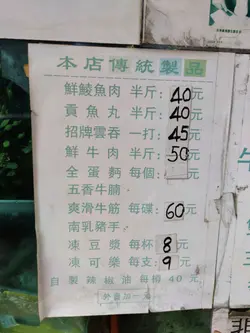 本店傳統製品
鮮鯪魚肉 半斤：40元
貢魚丸 半斤：40元
招牌雲吞 一打：45元
鮮牛肉 半斤：50元
全蛋麪 每個： 元
五香牛腩
爽滑牛筋 每碟：60元
南乳豬手
凍豆漿 每杯：8元
凍可樂 每支：9元
自製辣椒油 每樽40元
外賣加一元